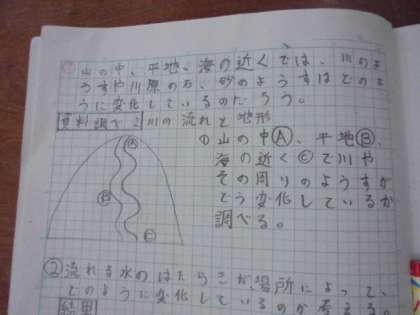 ①山の中、平地、海の近くでは、川のよ
うすや川原の石、砂のようすはどのよ
うに変化しているのだろう。
資料調べ2 川の流れと地形
①山の中Ⓐ、平地Ⓑ、
海の近くⒸで川や
その周りのようすが
どう変化しているか
調べる。
Ⓐ
Ⓑ
Ⓒ
②流れる水のはたらきが、場所によって、
どのように変化しているのか考える。
結果